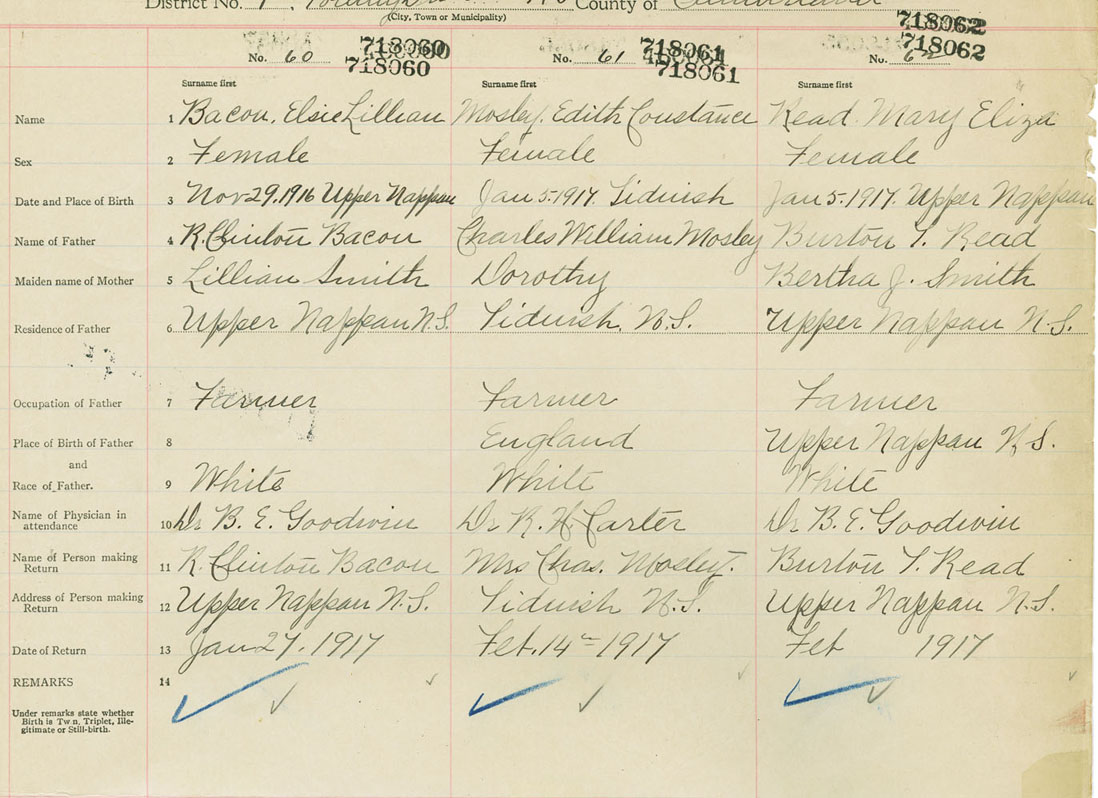 District No. County of Cumberland
(City, Town or Municipality)
718062
718060 718061 718062
No. 60 No. 61 No. 62
718060 718061
Surname first Surname first Surname first
Name 1 Bacon, Elsie Lillian Mosley, Edith Constance Read Mary Eliza
Sex 2 Female Female Female
Date and Place of Birth 3 Nov 29.1916 Upper Nappan Jan 5.1917. Tidnish Jan 5.1917. Upper Nappan
Name of Father 4 R. Clinton Bacon Charles William Mosley Burton T. Read
Maiden name of Mother 5 Lillian Smith Dorothy Bertha J. Smith
Residence of Father 6 Upper Nappan N.S. Tidnish, N.S. Upper Nappan N.S.
Occupation of Father 7 Farmer Farmer Farmer
Place of Birth of Father 8 England Upper Nappan N.S.
and
Race of Father. 9 White White White
Name of Physician in
attendance 10 Dr B. E. Goodwin Dr R. H. Carter Dr B. E. Goodwin
Name of Person making
Return 11 R. Clinton Bacon Mrs Chas. Mosley. Burton T. Read
Address of Person making
Return 12 Upper Nappan N.S. Tidnish N.S. Upper Nappan N.S.
Date of Return 13 Jan 27. 1917 Feb. 14th 1917 Feb 1917
REMARKS 14
Under remarks state whether
Birth is Twin, Triplet, Ille-
gitimate or Still-birth.